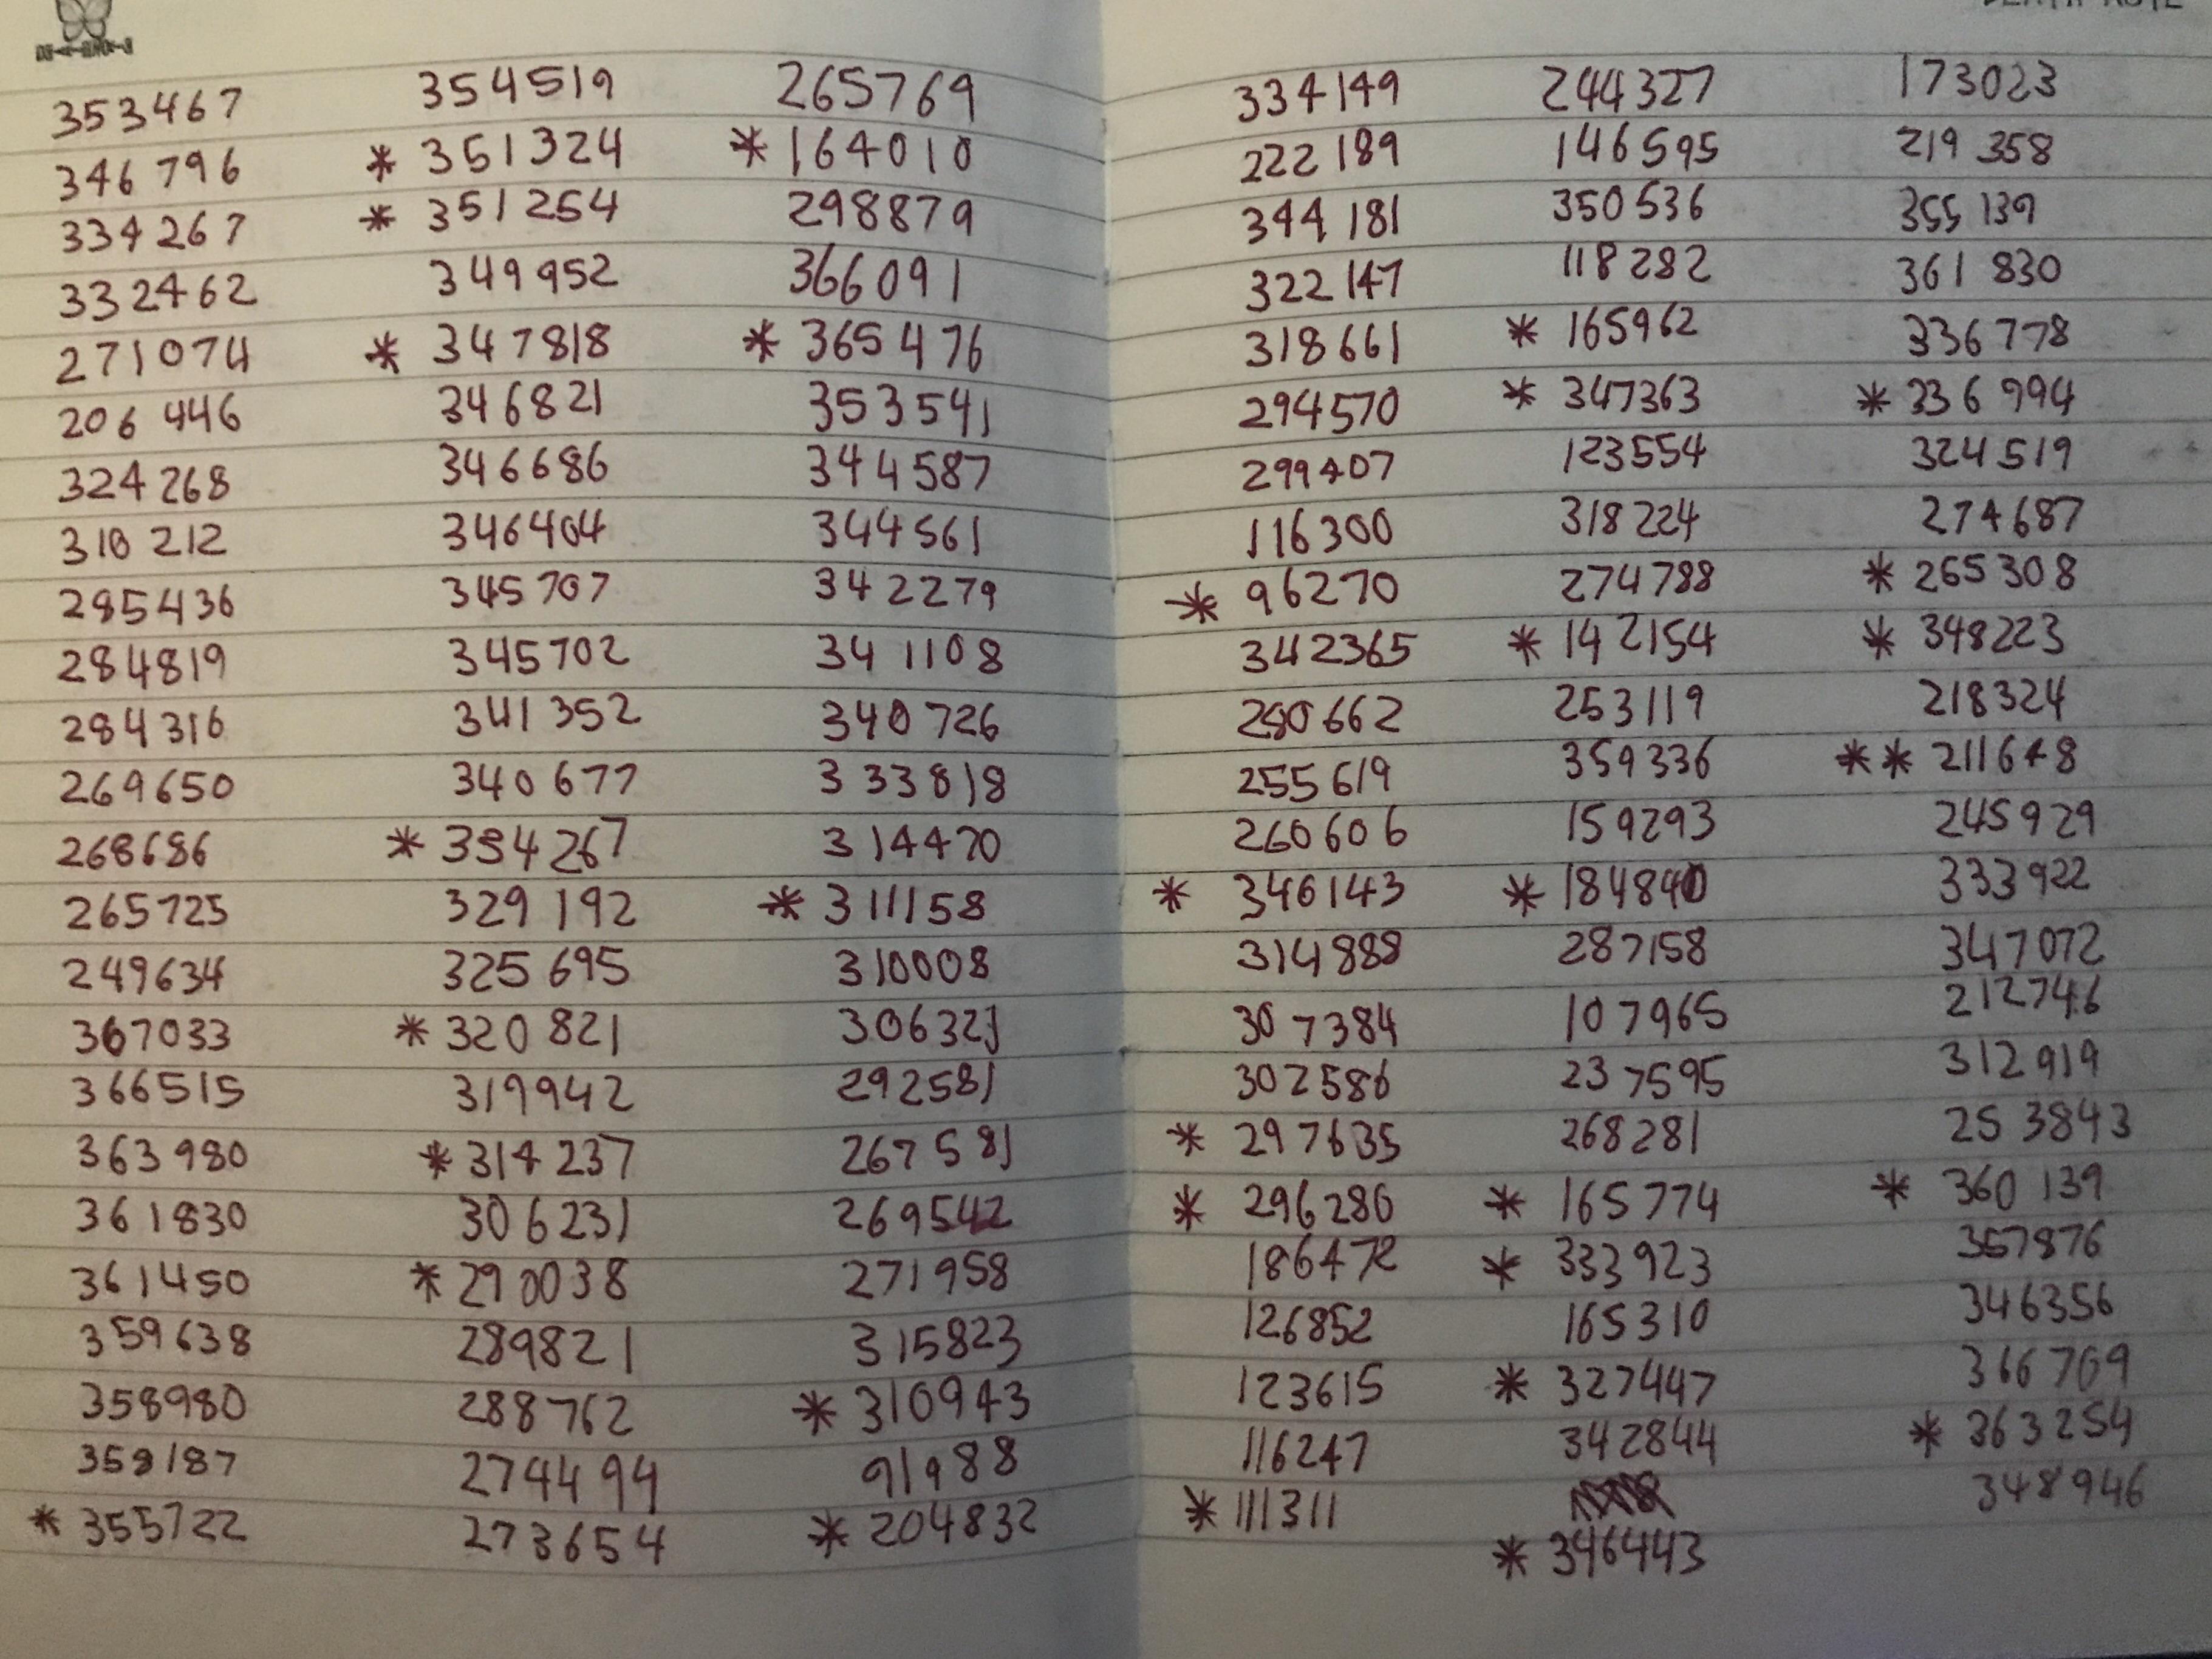 353467
346796
334267
332462
271074
206446
324268
310212
285436
284819
284316
269650
268686
265725
249634
367033
366515
363980
361830
361450
359638
358980
358187
* 355722
354519
* 351324
* 351254
349952
* 347818
346821
346686
346404
345707
345702
341352
340677
* 334267
329192
325695
* 320821
319942
* 314237
306231
* 290038
289821
288762
274494
273654
265769
* 164010
298879
366091
* 365476
353541
344587
344561
342279
341108
340726
333818
314470
* 311158
310008
306321
292581
267581
269542
271958
315823
* 310943
91988
* 204832
334149
222189
344181
322147
318661
294570
299407
116300
* 96270
342365
280662
255619
260606
* 346143
314888
307384
302586
* 297635
* 296280
186472
126852
123615
116247
* 111311
244327
146595
350536
118282
* 165962
* 347363
123554
318224
274788
* 142154
253119
359336
159293
* 184840
287158
107965
237595
268281
* 165774
* 333923
165310
* 327447
342844
* 346443
173023
219358
355139
361830
336778
* 336994
324519
274687
* 265308
* 348223
218324
** 211648
245929
333922
347072
212746
312919
253843
* 360139
357876
346356
366709
* 363254
348946